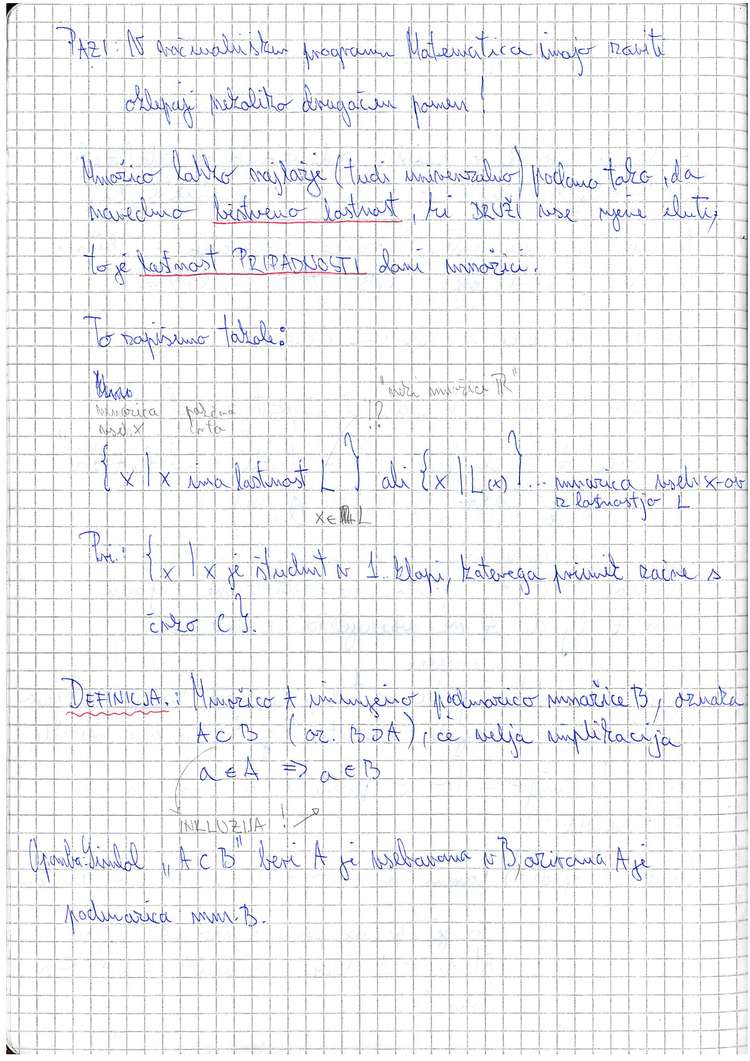 PAZI: V računalniškem programu Mathematica imajo zaviti
oklepaji nekoliko drugačen pomen!
Množico lahko najlažje (tudi univerzalno) podamo tako, da
navedemo bistveno lastnost, ki DRUŽI vse njene elnte,
to je lastnost PRIPADNOSTI dani množici.
To zapišemo takole:
"neke množice ℝ"
množica
vseh x
{x | x ima lastnost L} ali {x | L(x)}... množica vseh x-ov
z lastnostjo L
x ∈ L
Pri.: {x | x je študent v 1. klopi, katerega priimek začne s
črko C}.
DEFINICIJA.: Množico A imenujemo podmnožico množice B, oznaka
A ⊂ B (oz. B ⊃ A), če velja implikacija
a ∈ A ⇒ a ∈ B
INKLUZIJA!
Opomba: Simbol „A ⊂ B" beri A je vsebovana v B, oziroma A je
podmnožica mn. B.